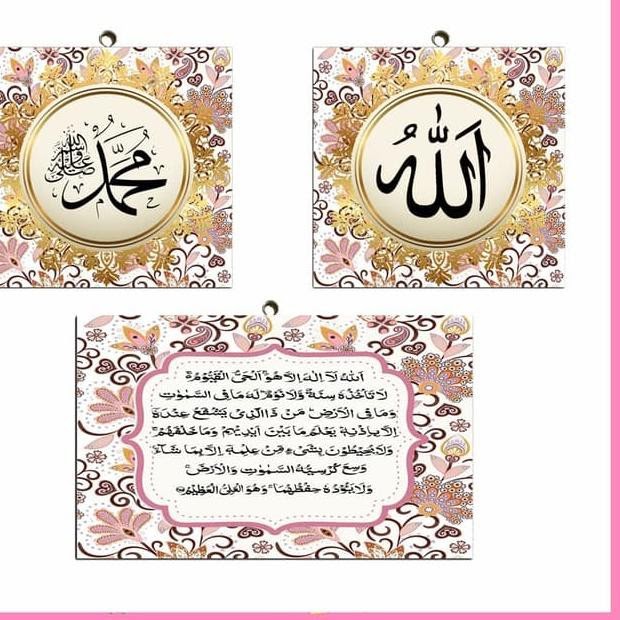 الله
محمد
صلى الله عليه وسلم
اَللّٰهُ لَآ اِلٰهَ اِلَّا هُوَ اَلْحَيُّ الْقَيُّوْمُ ە
لَا تَأْخُذُهٗ سِنَةٌ وَّلَا نَوْمٌ لَهٗ مَا فِى السَّمٰوٰتِ
وَمَا فِى الْاَرْضِ مَنْ ذَا الَّذِيْ يَشْفَعُ عِنْدَهٗ
اِلَّا بِاِذْنِهٖ يَعْلَمُ مَا بَيْنَ اَيْدِيْهِمْ وَمَا خَلْفَهُمْ
وَلَا يُحِيْطُوْنَ بِشَيْءٍ مِّنْ عِلْمِهٖ اِلَّا بِمَا شَاۤءَ
وَسِعَ كُرْسِيُّهُ السَّمٰوٰتِ وَالْاَرْضَ
وَلَا يَئُوْدُهٗ حِفْظُهُمَا وَهُوَ الْعَلِيُّ الْعَظِيْمُ